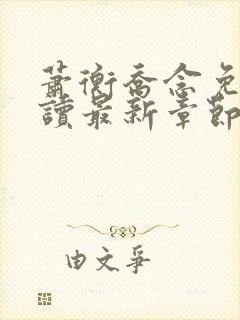 蕭衡喬念免
讀最新章節
由文爭